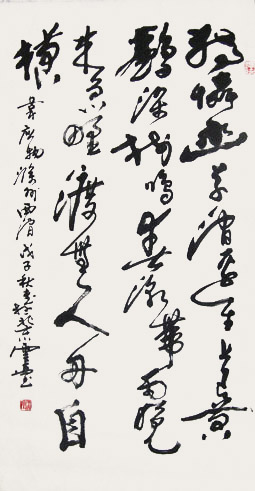 獨憐幽草澗邊生上有黄
鸝深樹鳴春潮帶雨晚
来急野渡無人舟自
横
韋應物滁州西澗戊子秋書於北京